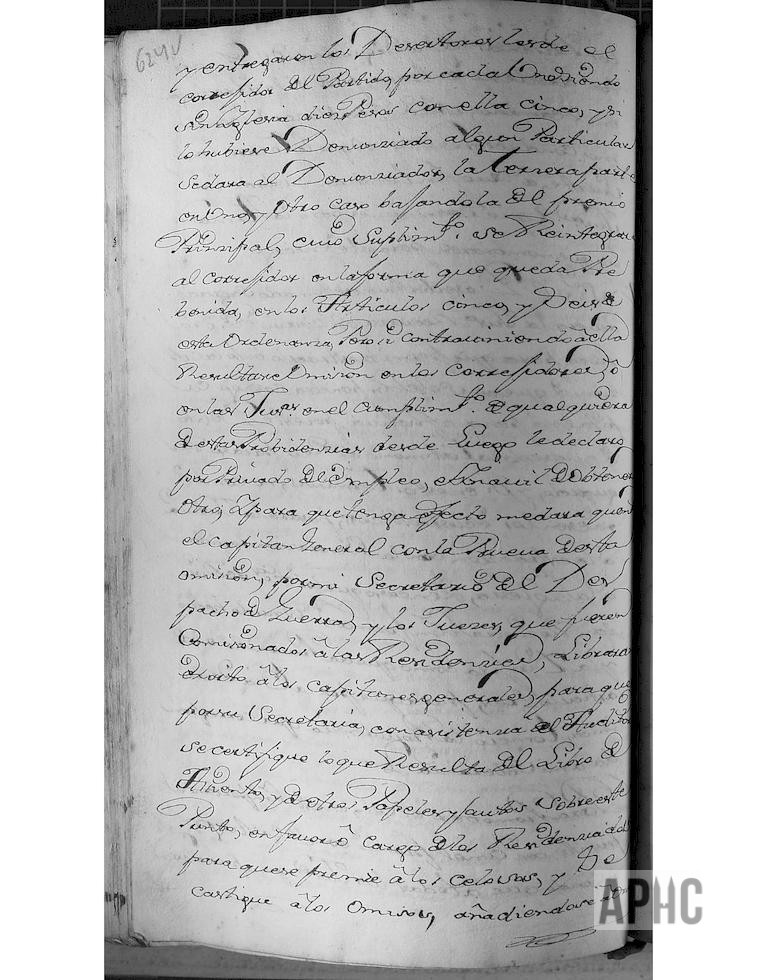 624v
y entregaron los Desertores les de el
correjidor del Partido, por cada Uno siendo
sin Yglesia dies Pesos con ella cinco, y si
lo hubiere Denunziado algun Particular
se dara al Denunziador, la tercera parte
en Uno, y otro caso bajandola del premio
Prinzipal, cuio Suplimto. se Reintegrara
al correjidor en la forma que queda Pre
benida, en los Articulos cinco, y Seis de
esta Ordenanza, Pero si contraviniendo à ella
Resultare Omision en los Correjidores, ò
en las Jusas. en el Cumplimto. de qualquiera
de estas Probidenzias desde Luego le declaro
por Privado del Empleo, e Ynavil de obtener
otro, à para que tenga efecto me dara quenta
el capitan General con la Prueva de esta
omision, por mi Secretario del Des
pacho de Guerra, y los Juezes, que fueren
Comisionados à las Residenzias, Libraran
exorto à los capitanes generales, para que
por su Secretaria, con asistenzia del Auditor
se certifique lo que Resulta del Libro de
Asiento, y de otros Papeles y autos sobre este
Punto, en favor ò cargo de los Residenziados
para que se premie à los celosos, y Se
castigue à los Omisos, añadiendose
APHC